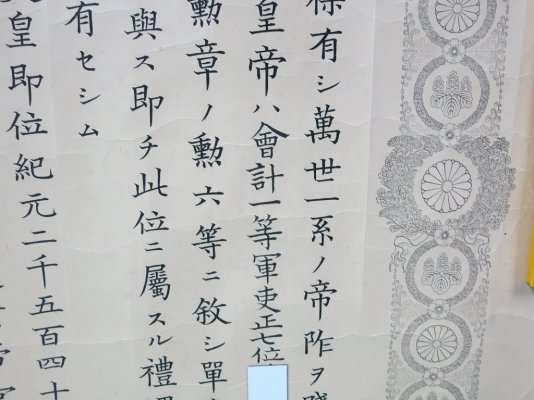 保有シ萬世一系ノ帝阼ヲ踐
皇帝ハ會計一等軍吏正七位
勲章ノ勲六等ニ敘シ單
與ス即チ此位ニ屬スル禮
有セシム
皇即位紀元二千五百四十